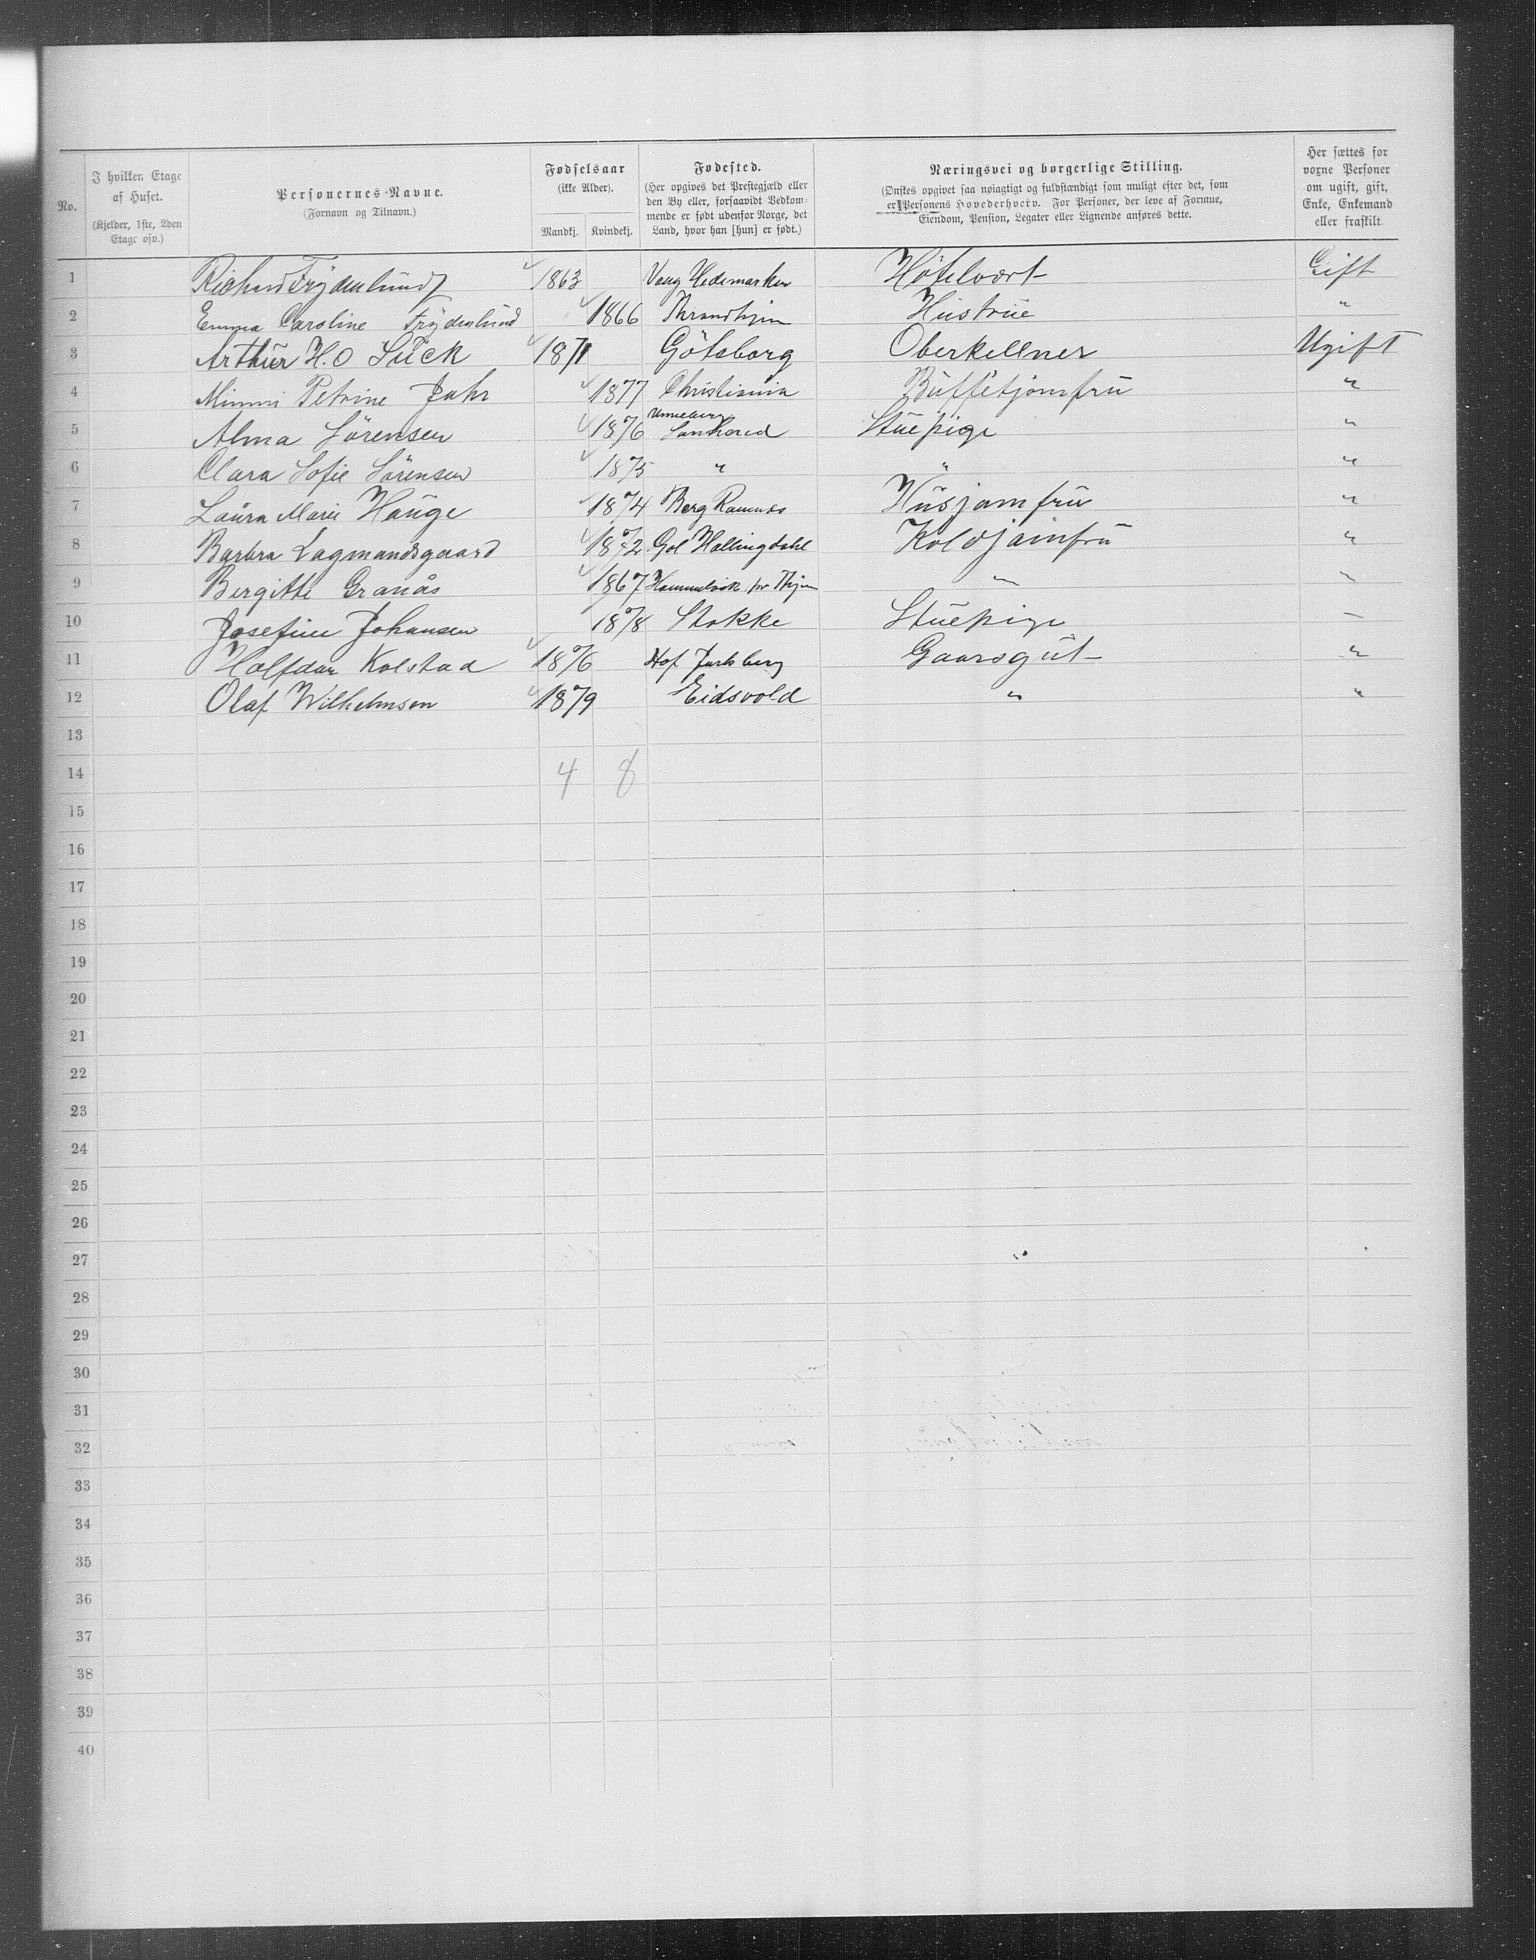 No.
I hvilken Etage af Huset. (Kjelder, 1ste, 2den Etage osv.)
Personernes Navne. (Fornavn og Tilnavn.)
Fødselsaar (ikke Alder). Mandkj. Kvindekj.
Fødested. (Her opgives det Prestegjæld eller den By eller, forsaavidt Vedkommende er født udenfor Norge, det Land, hvor han [hun] er født.)
Næringsvei og borgerlige Stilling. (Ønskes opgivet saa nøiagtigt og fuldstændigt som muligt efter det, som er Personens Hovederhverv. For Personer, der leve af Formue, Eiendom, Pension, Legater eller Lignende anføres dette.
Her sættes for voxne Personer om ugift, gift, Enke, Enkemand eller fraskilt.
1 Richard Frydenlund 1863 Vang Hedemarken Hotelvært Gift
2 Emma Caroline Frydenlund 1866 Throndhjem Hustrue "
3 Arthur H. O Suck 1871 Göteborg Oberkellner Ugift
4 Mimmi Petrine Jahr 1877 Christiania Buffetjomfru "
5 Alma Sörensen 1876 Unneberg Sanherred Stuepige "
6 Clara Sofie Sörensen 1875 " " "
7 Laura Marie Hauge 1874 Berg Ramnes Husjomfru "
8 Barbra Lagmandsgaard 1872 Gol Hallingdahl Koldjomfru "
9 Bergitte Granås 1867 Hommelvik pr Thjem " "
10 Josefine Johansen 1878 Stokke Stuepige —
11 Halfdan Kolstad 1876 Hof Jarlsberg Gaarsgut "
12 Olaf Wilhelmsen 1879 Eidsvold " "
13
14 4 8
15
16
17
18
19
20
21
22
23
24
25
26
27
28
29
30
31
32
33
34
35
36
37
38
39
40